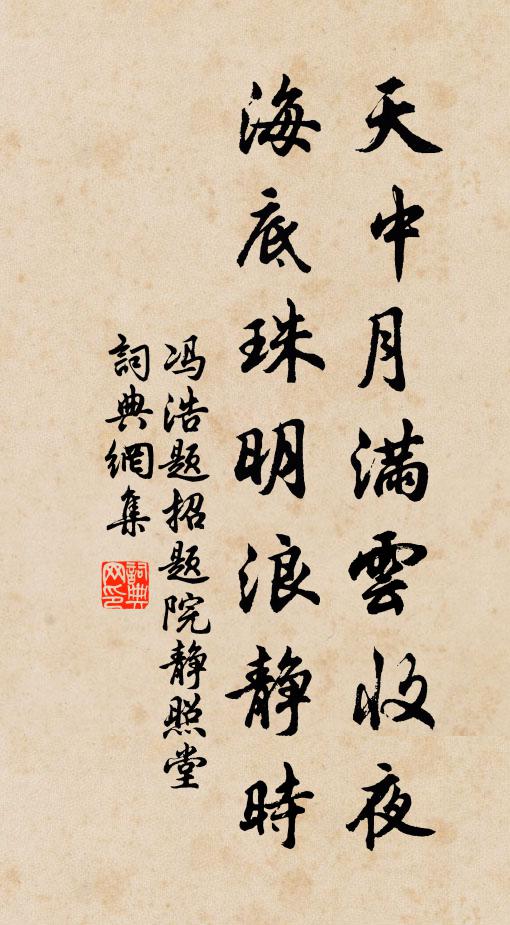 天中月满雲收夜
海底珠明浪静時
冯浩题招题院静照堂
詞典網集
詞典网印